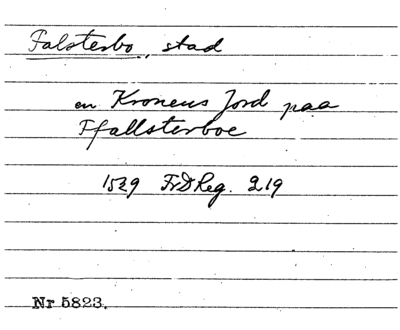 Falsterbo, stad
en Kronens Jord paa
Ffallsterboe
1529 FrDReg. 219
Nr 5823.